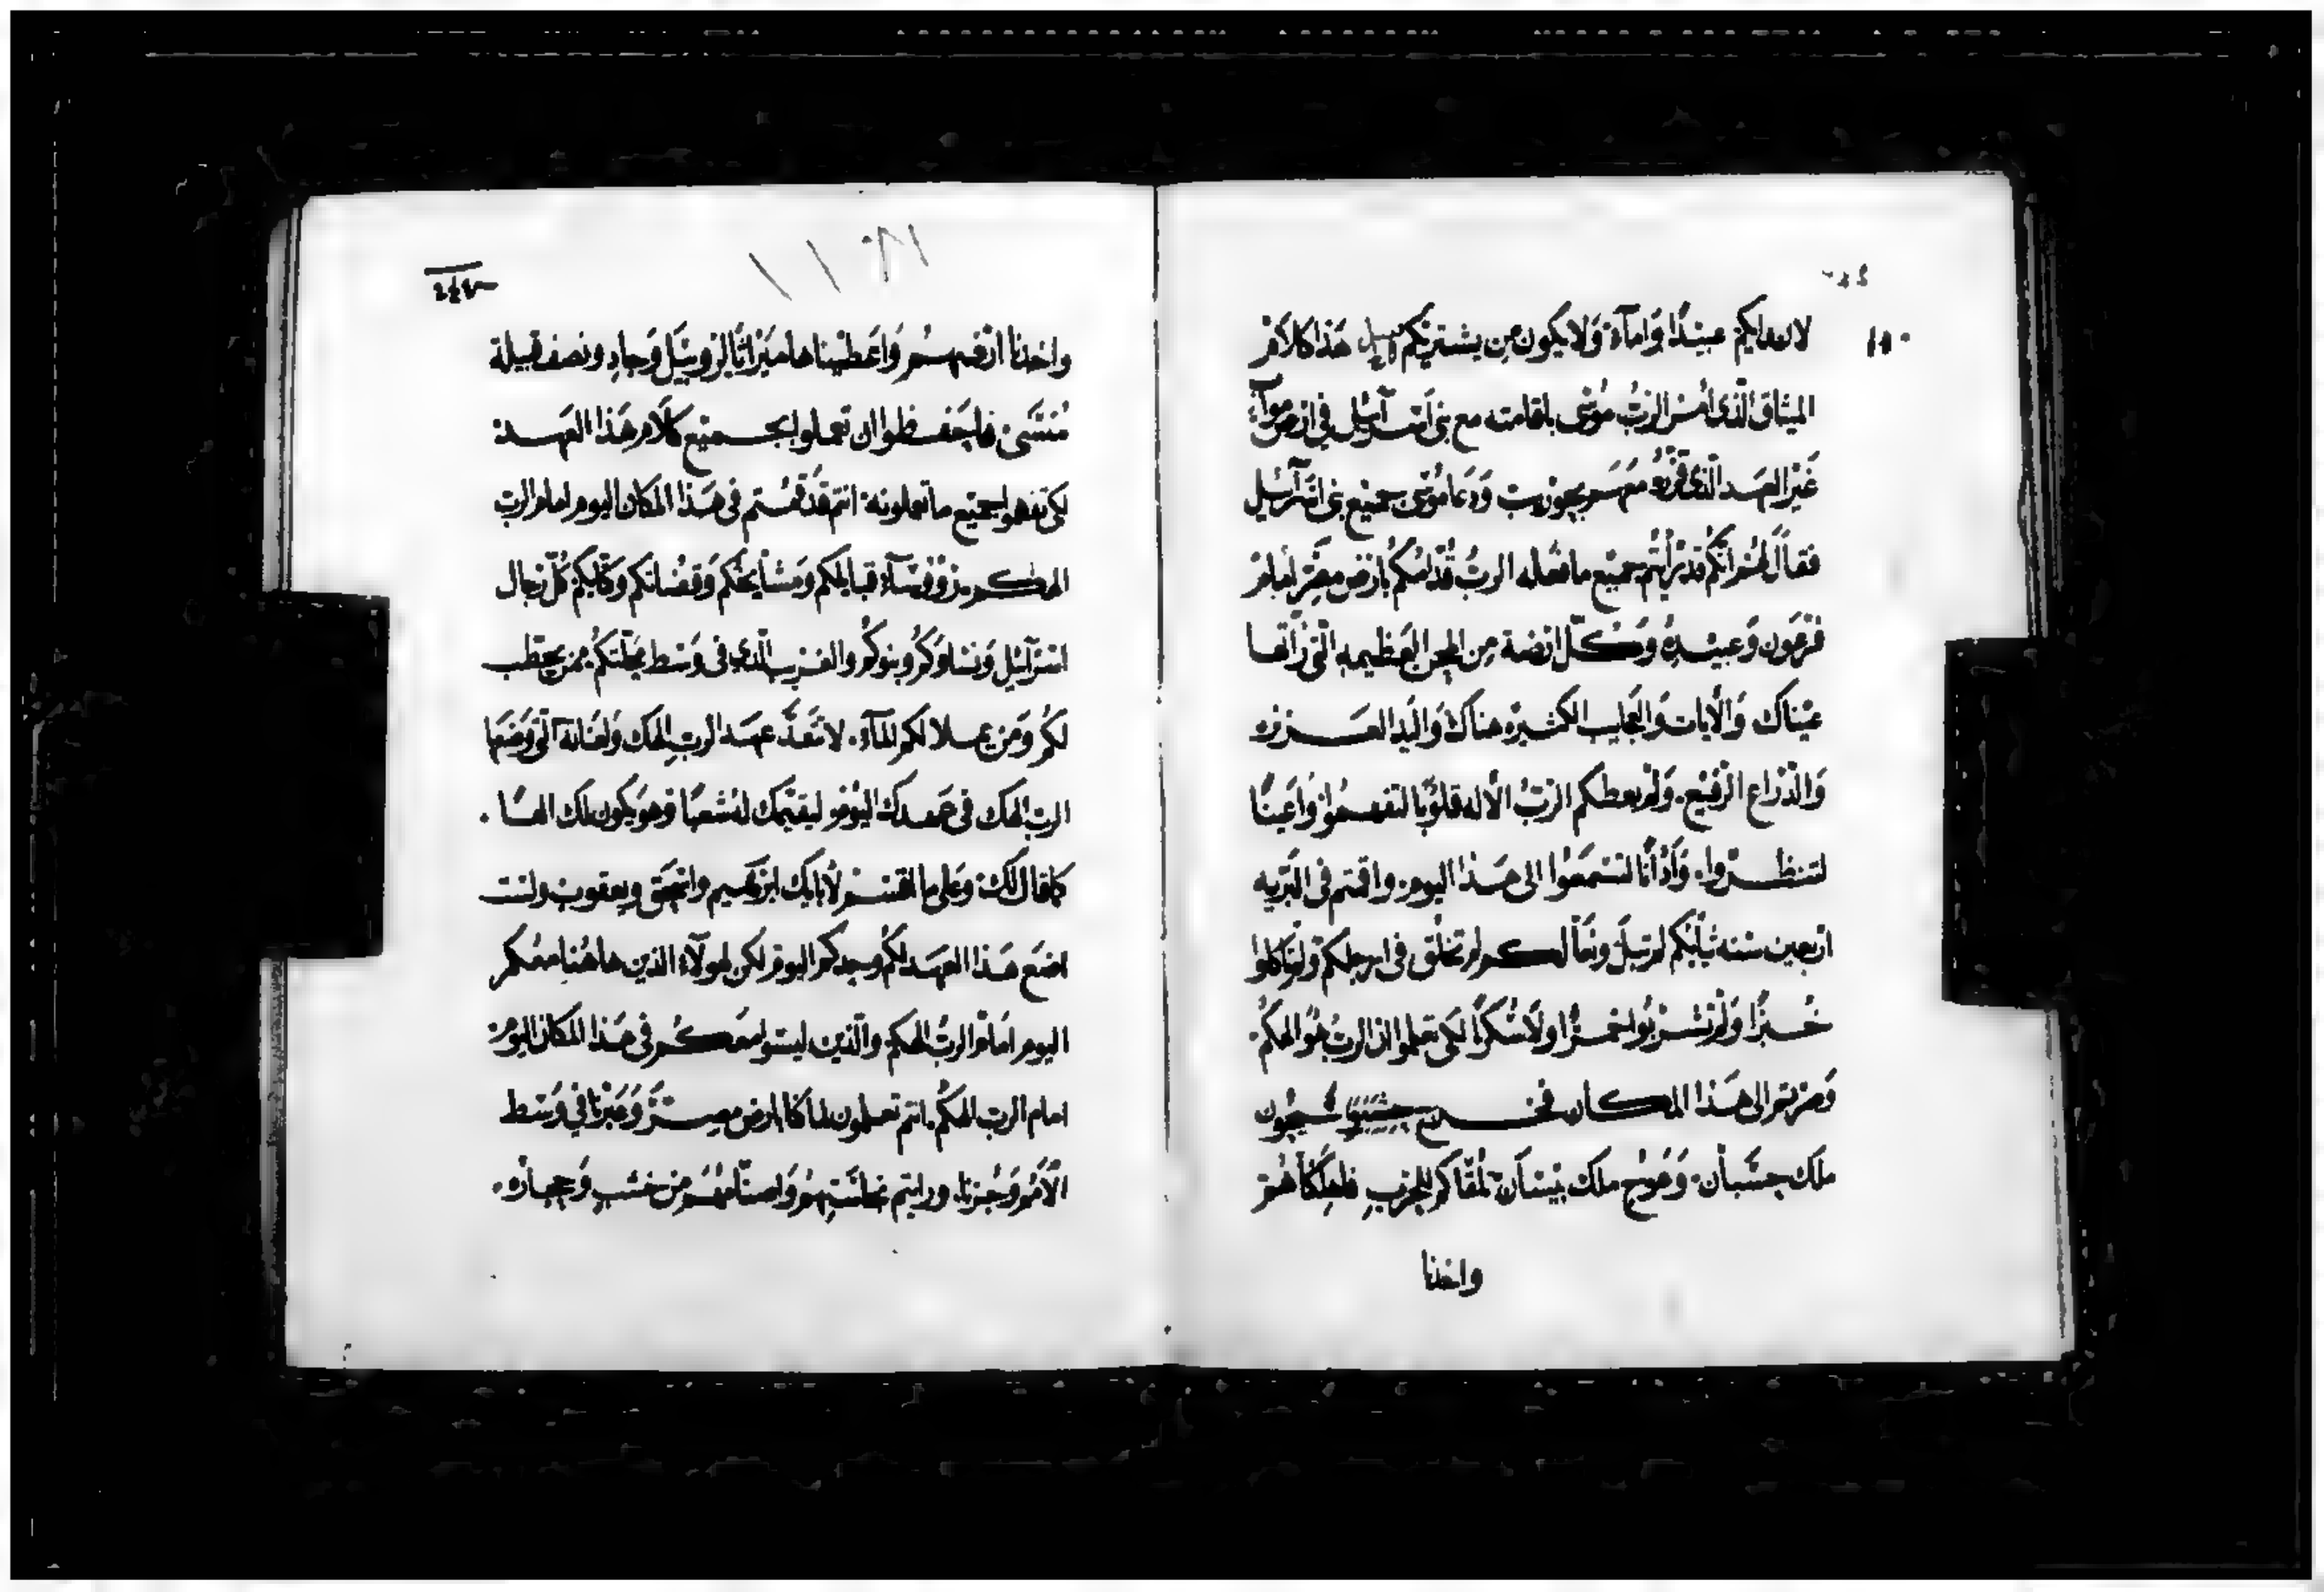 لاعدايكم عبيدًا وَامآء وَلا يكون مِن يشتريكم هَذا كلام
الميثاق الّذى امر الرَبُ موسَى باقامته مع بنى اسرآئيل فى ارض موآب
غَيْر العهد الّذى قرره معَهم بحوريب وَدعا موُسَى جميع بنى اسرآئيل
فقالَ لهُم انكُم قد رايتم جميع ما فعله الربُ قُدامكُم بارض مِصْر امام
فرعَون وَعبيده وَكلّ ارضة مِن المحن العَظيمه الّتى رَاتها
عَيْناك وَالأيات وَالعجايب الكثيره هناك وَاليد العَزيزه
وَالذراع الرَفيْع. وَلم يعطكم الرَبُ الألَه قلوبًا لتفهمُوا وَاعَينًا
لتنظروا. وَأذانًا لتسَمعَوُا الى هَذا اليوم. واقمتم فى البَرّيه
اربعين سَنه ثيابكم لم تبلَ ونعالكم لم تخلق فى ارجلكم ولم تاكلوا
خُبزًا وَلم تشربوا خمرًا ولَا سُكرًا لكى تعلموا ان الربُ هوُ الهكُم.
وَصرتم الى هَذا المكان فخرج سَيحوُن
ملك حسَبان. وَعوُج ملك بيسَان تلقاكم للحَرب فاهلكناهُم
واخذنا
واخذنا ارضهم وَاعَطيناها ميَراثًا لروبيَل وَجادِ ونصف قبيلة
مُنسَّى. فاحفظوا ان تعملوا بجميع كلَام هَذا العَهد.
لكى تفهموا جميع ما تعملونه. انتم قدَ قمُتم فى هَذا المكان اليوم امام الرب
الهكم رووسَآء قبايلكم وَمشَايخكم وَقضاتكم وَكتابكم كُل رجال
اسَرآئيل وَنسَاوكم وبنوكم والغريب الّذى فى وَسط محلتكُم. ممن يحتطب
لكم وَمَن يملا لكم الماء. لا تتَعَدَّ عهَد الرب الهك وَلعَناته الّتى وَضَعها
الرب الهك فى عَهدك اليَوُم ليقيمك لهُ شعبًا وَهو يكون لك الهًا.
كما قال لك. وعَلى ما اقسَم لأبايك ابرهيم واسحَق ويعقوب ولست
اضَع هَذا العهَد لكم وحدكم اليوم لكن لهولآء الذين هاهُنا معكم
اليوم امامَ الربُ الهكم. والّذين ليسَوا معَكم فى هَذا المكان اليوم
امام الرب الهكُم. انتم تعلمون لما كنا بارض مِصر وَعَبرنا فى وَسَط
الأمم وَجُزنا. ورايتم نجاسَتهم وَاصنَامهُم مِن خشب وَحجاره.